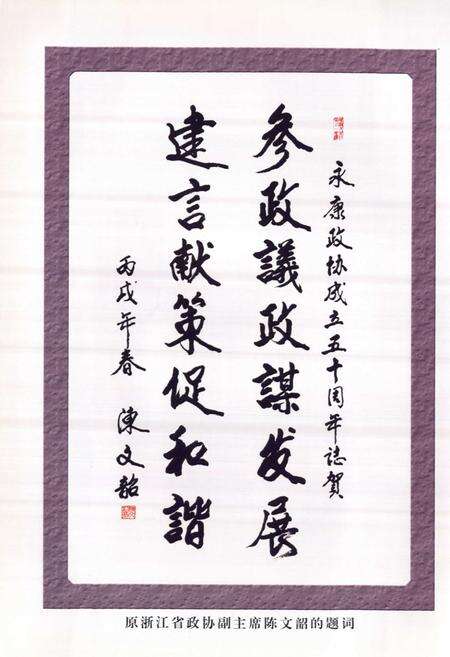 永康政协成立五十周年誌賀
参政議政謀发展
建言献策促和谐
丙戌年春 陳文韶
原浙江省政协副主席陈文韶的题词